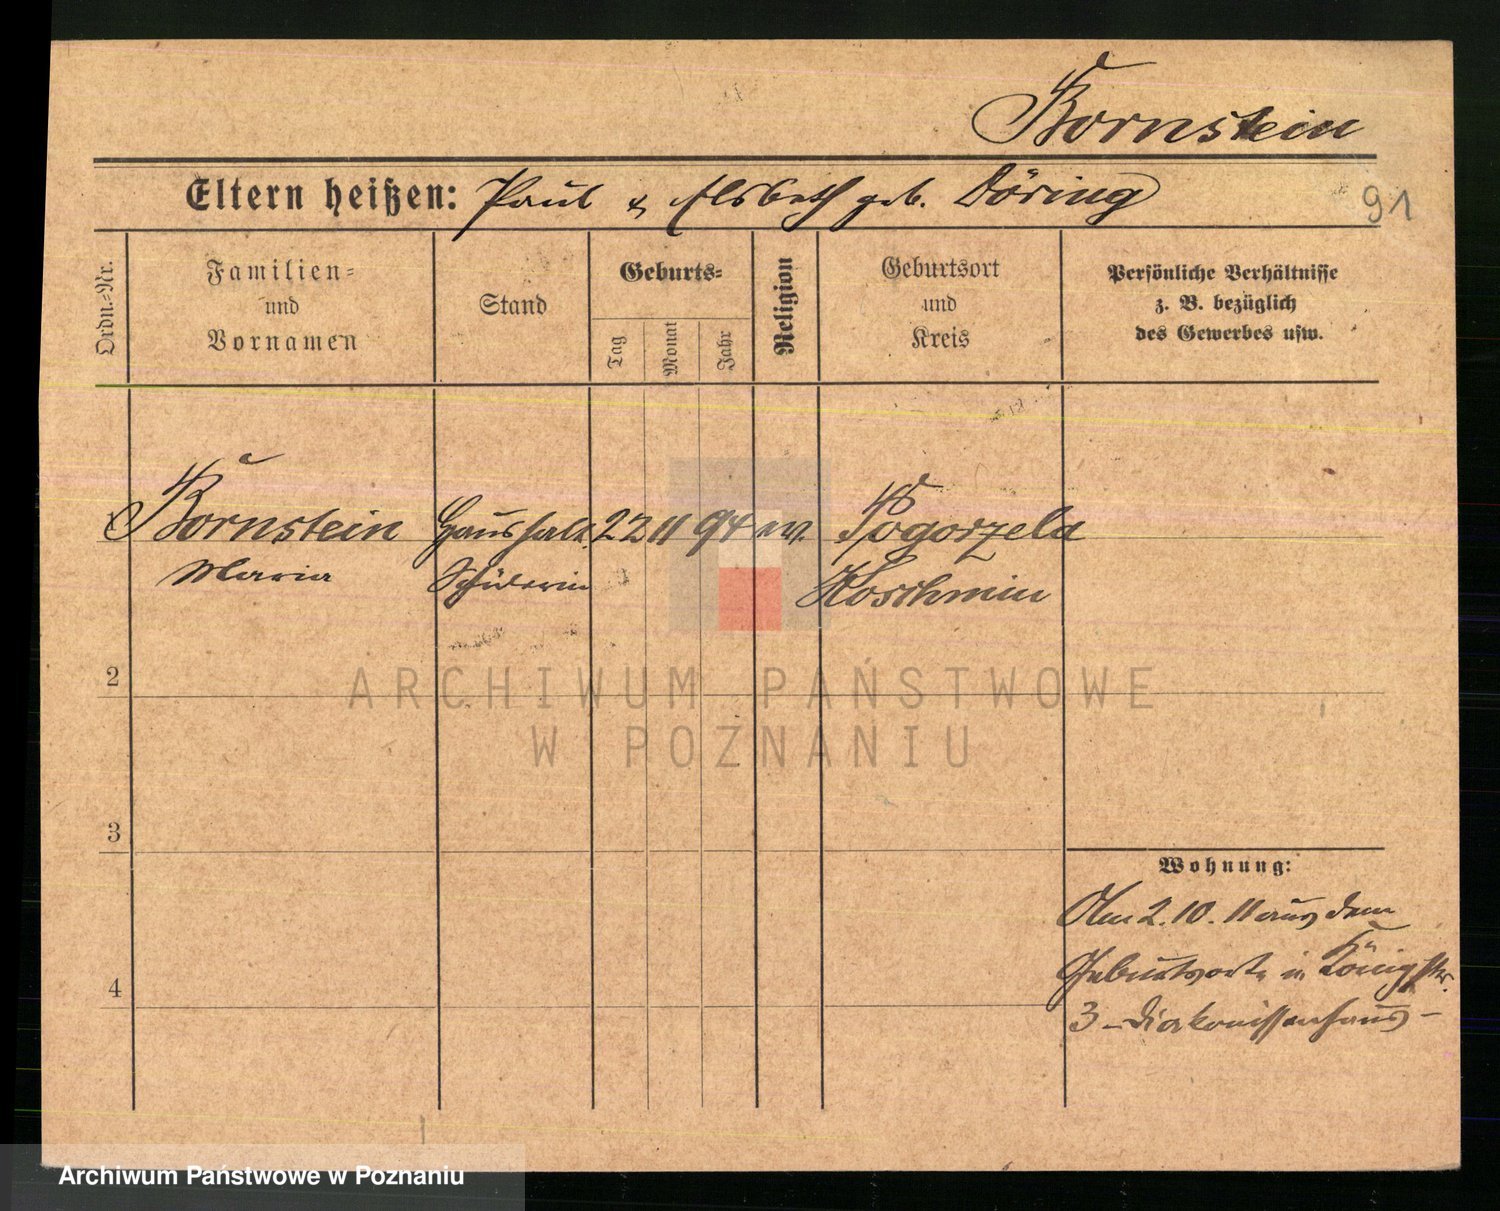 Bornstein
Eltern heißen: Paul & Elsbeth geb. Döring
91
Ordn.=Nr.
Familien=
und
Vornamen
Stand
Geburts=
Tag
Monat
Jahr
Religion
Geburtsort
und
Kreis
Persönliche Verhältnisse
z. B. bezüglich
des Gewerbes usw.
1 Bornstein Haushalt. 22 11 94 ev. Pogorzela
Maria Schülerin Koschmin
ARCHIWUM PAŃSTWOWE
W POZNANIU
2
3
4
Wohnung:
Am 2. 10. 11 aus dem
Geburtsorte in Königstr.
3 – Diakonissenhaus –
Archiwum Państwowe w Poznaniu